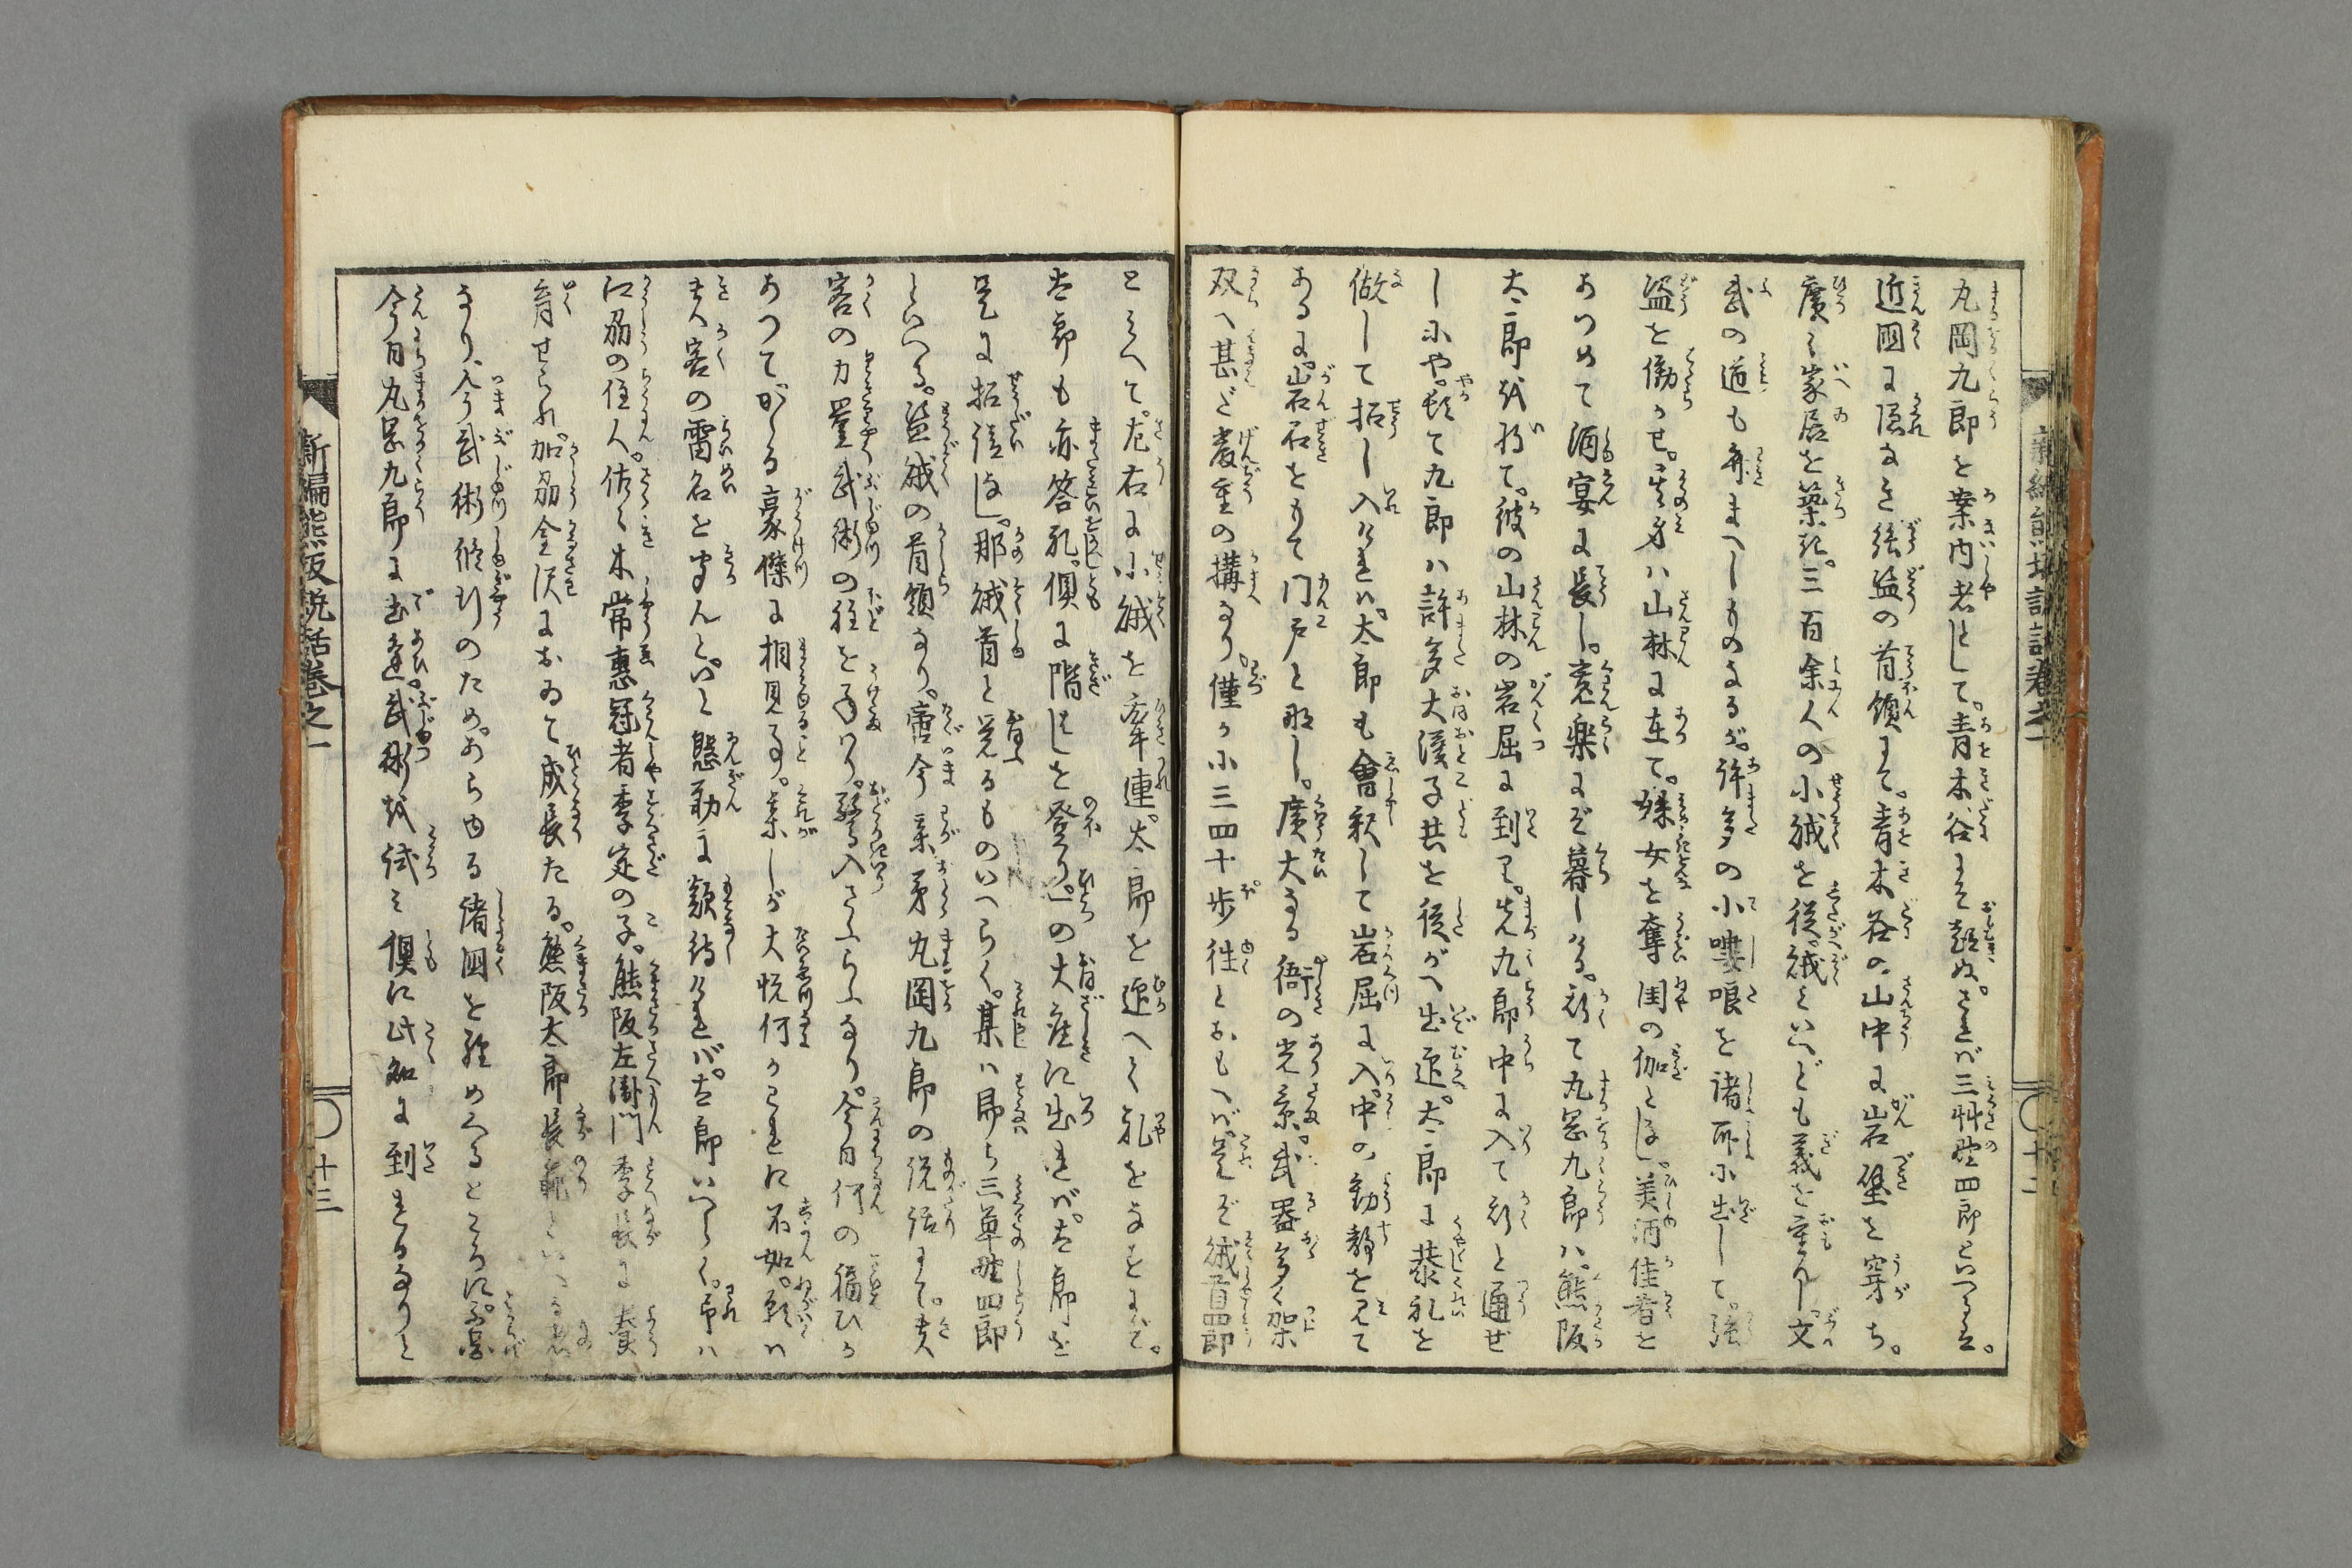 丸岡九郎を案内者として。青木谷にぞ趣ぬ。さて三草野四郎といつるは。
近国に隠なき強盗の首領にて。青木谷の山中に岩窟を穿ち。
広く家居を築き。三百余人の小賊を従。賊といへども義を重んじ。文
武の道も弁まへしものなるが。許多の小嘍囉を諸所に出して。強
盗を働かせ。其身ハ山林に在て。婇女を奪閨の伽とし。美酒佳肴を
あつめて酒宴に長し。寛楽にぞ暮しける。斯て丸岡九郎ハ。熊阪
太郎を将て。彼の山林の岩屈に到り。先九郎中に入て斯と通ぜ
しにや。頓て九郎ハ許多大漢子共を従がへ出迎。太郎に恭礼を
做して招し入ければ。太郎も会釈して岩屈に入。中の動静を見て
あるに。岩石をもて門戸と那し。広大なる衙の光景。武器多く架
双へ甚だ厳重の搆なり。僅か小三四十歩往とおもへバ。是ぞ賊首四郎
とみへて。左右に小賊を牽連。太郎を迎へて礼をなすにぞ。
太郎も亦答礼。倶に階しを登り。一の大座に出れバ。太郎を
是に招請し。那賊首と覚るものいへらく。某ハ即ち三草野四郎
といへる。盗賊の首領なり。啻今義弟丸岡九郎の説話にて。貴
客の力量武術の程を承りぬ。驚入さふらふなり。今日何の福ひか
あつてかゝる豪傑に相見事。某しが大悦何かこれに不如。願ハ
貴客の雷名を聞んと。いと慇懃に頼待ければ。太郎いへらく。即ハ
江刕の住人。佐々木常恵冠者季定の子。熊阪左衛門季長に養
育せられ。加刕金沢におゐて成長たる。熊阪太郎長範といへる者
なり。今武術修行のため。あらゆる諸国を経めぐるところに。不意
今日丸岡九郎に出逢。武術を試み倶に此知に到れるなりと
新編熊阪説話巻之一
十三